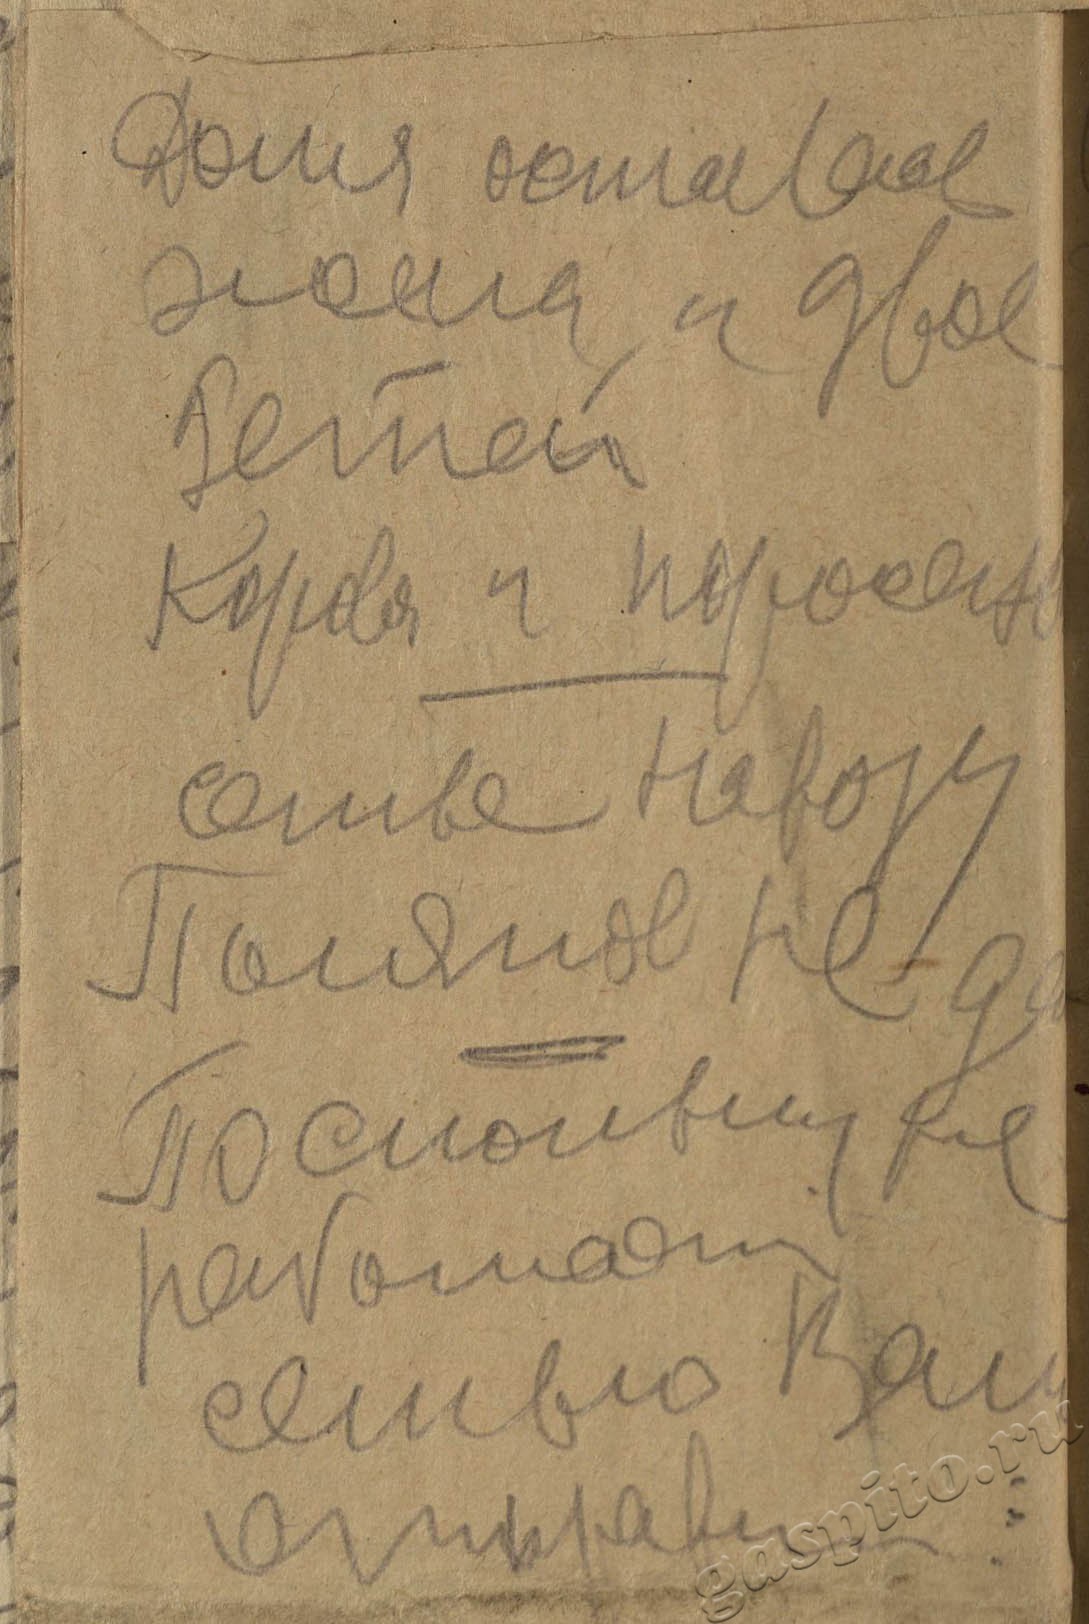 Дома осталас
жена и двое
детей
Корова и поросен
семье навозу
Поляков не да
Постоивш не
работает
семью Ваш
отправи
gaspito.ru